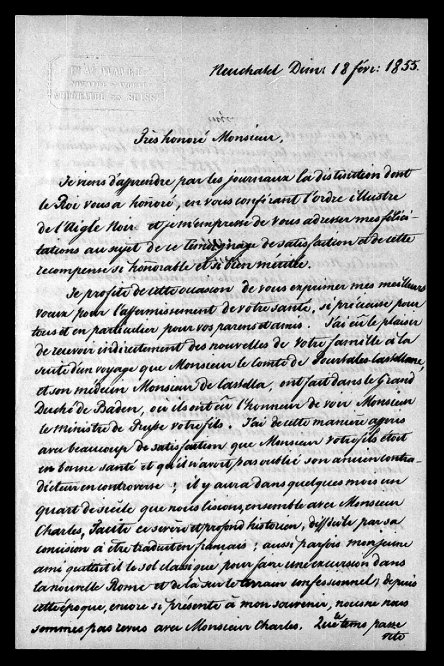 Neuchatel Dim: 18 févr: 1855.
Très honoré Monsieur,
Je viens d'apprendre par les journeaux la distinction dont
le Roi vous a honoré, en vous conférant l'ordre illustre
de l'Aigle Noir et je m'empresse de vous adresser mes félici-
tations au sujet de ce témoignage de satisfaction et de cette
recompense si honorable et si bien méritée.
Je profite de cette occasion de vous exprimer mes meilleurs
voeux pour l'affermissement de votre santé, si précieuse pour
tous et en particulier pour vos parens et amis. J'ai eû le plaisir
de recevoir indirectement des nouvelles de votre famille à la
suite d'un voyage que Monsieur le Comte de Pourtales
et son médecin Monsieur de Castella, ont fait dans le Grand
Duché de Baden, où ils ont eû l'honneur de voir Monsieur
le ministre de Prusse votre fils. J'ai de cette manière appris
avec beaucoup de satisfaction que Monsieur votre fils étoit
en bonne santé et qu'il n'avoit pas oublié son ancien contra-
dicteur en controverse; il y aura dans quelques mois un
quart de siècle que nous lisions, ensemble avec Monsieur
Charles, Tacite ce serré et profond historien, difficile par sa
concision à être traduit en français; aussi parfois mon jeune
ami quittait il le sol classique pour faire une excursion dans
la nouvelle Rome et de là sur le terrain confessionnel; depuis
cette époque, encore si présente à mon souvenir, nous ne nous
sommes pas revus avec Monsieur Charles. Que le tems passe
vite